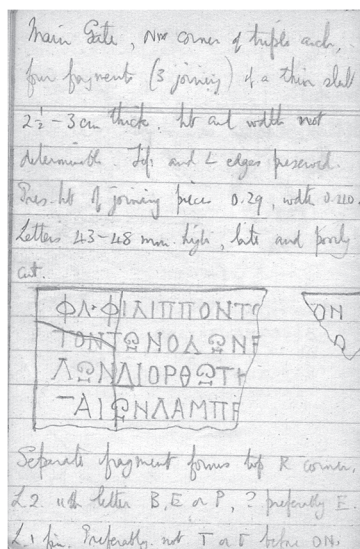 Main Gate, NW corner of triple arch,
four fragments (3 joining) of a thin slab
2½–3 cm thick. ht and width not
determinable. Top and L edges preserved.
Pres. ht of joining pieces 0.29, width 0.240.
Letters 43–48 mm. high, late and poorly
cut.
ΦΛ·ΦΙΛΙΠΠΟΝΤ ΟΝ
ΤΟΝΤΩΝΟΛΩΝΕ
ΛΩΝΔΙΟΡΘΩΤΗ
ΑΙΩΝΛΑΜΠΡ
Separate fragment forms top R corner.
L.2. 11th letter B, E or P, ? preferably E.
L.1 fin. Preferably not T or Γ before ON.